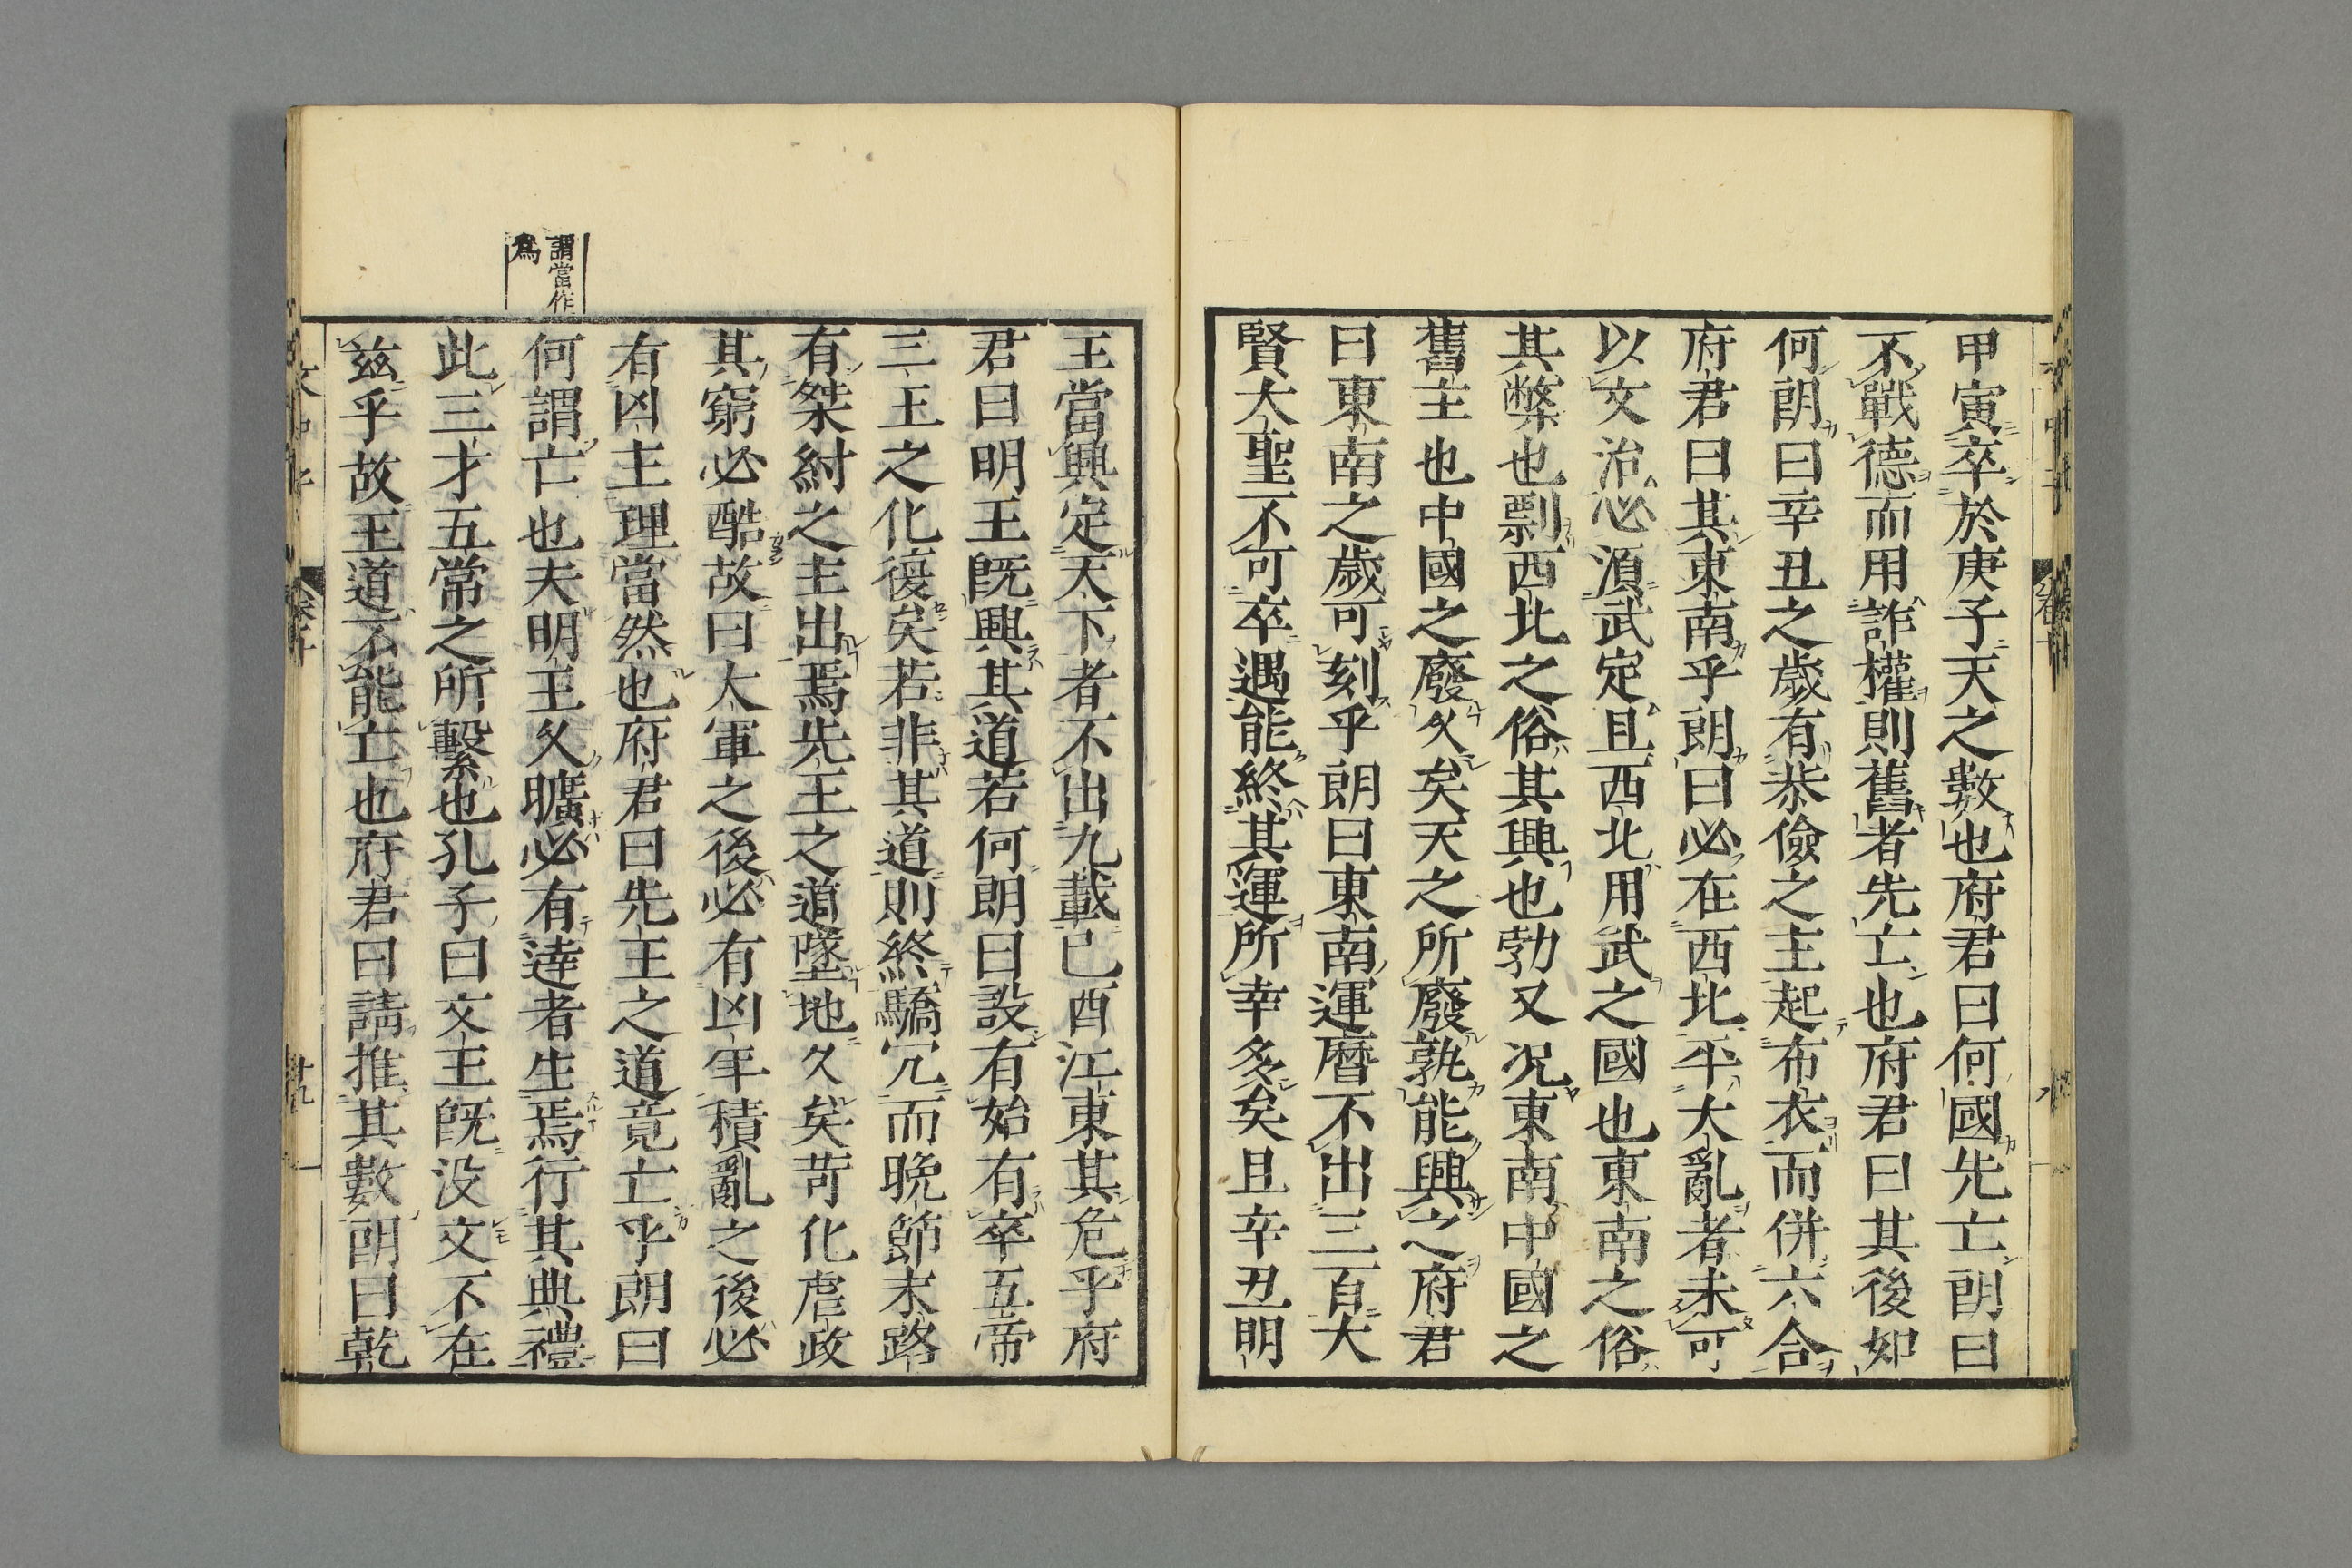 甲寅卒於庚子天之數也府君曰何國先亡朗曰
不戰德而用詐權則舊者先亡也府君曰其後如
何朗曰辛丑之歲有恭儉之主起布衣而併六合
府君曰其東南乎朗曰必在西北平大亂者未可
以文治必湏武定且西北用武之國也東南之俗
其獘也剽西北之俗其興也勃又况東南中國之
舊主也中國之廢久矣天之所廢孰能興之府君
曰東南之歲可刻乎朗曰東南運曆不出三百大
賢大聖不可卒遇能終其運所幸多矣且辛丑明
王當興定天下者不出九載已酉江東其危乎府
君曰明王既興其道若何朗曰設有始有卒五帝
三王之化復矣若非其道則終驕冗而晚節末路
有桀紂之主出焉先王之道墜地久矣苛化虐政
其窮必酷故曰大軍之後必有凶年積亂之後必
有凶主理當然也府君曰先王之道竟亡乎朗曰
何謂亡也夫明王久曠必有達者生焉行其典禮
此三才五常之所繫也孔子曰文王既没文不在
兹乎故王道不能亡也府君曰請推其數朗曰乾
謂當作
爲
卷十